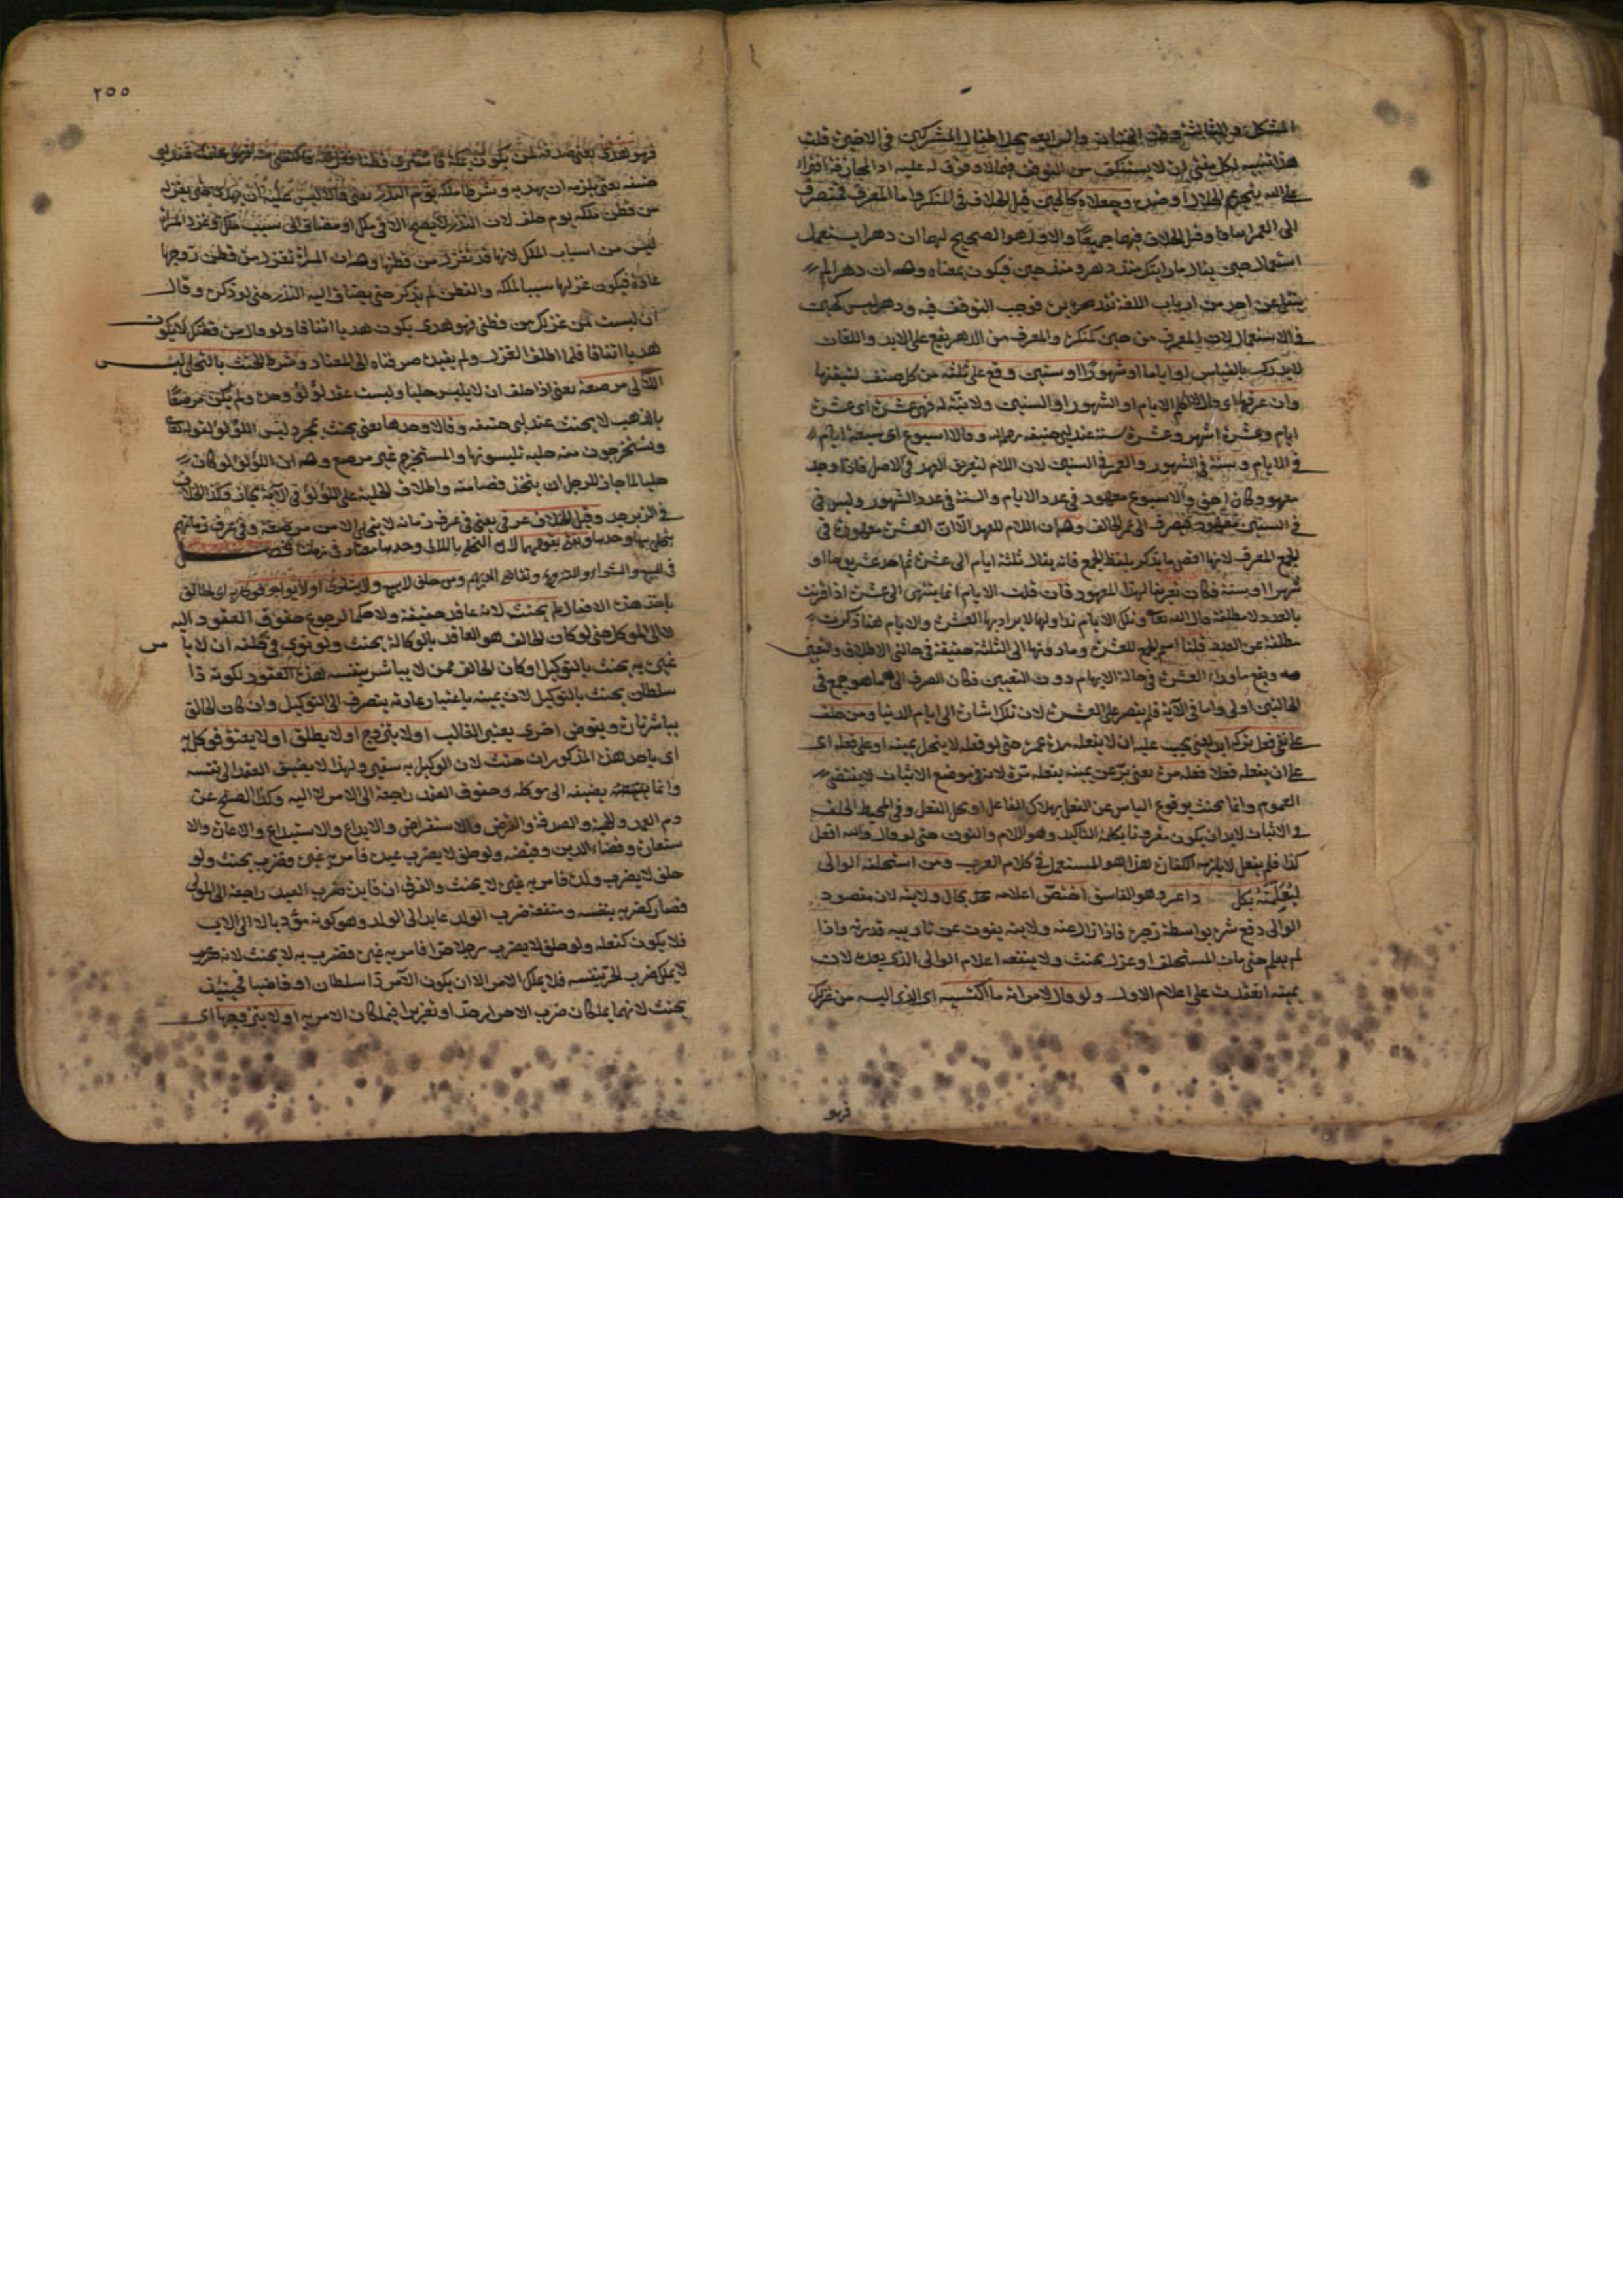 المشكل والثالثة وقت الختان والرابعة محل اطفال المشركين في الاخرة قلت
هذا تنبيه لكل مفتي ان لا يستنكف من التوقف فيما لا وقوف له عليه اذ المجازفة افتراء
على الله بتحريم الحلال او ضده وجعلاه كالحين قيل الخلاف في المنكر واما المعرف فينصرف
الى العمر اتفاقا وقيل الخلاف فيهما جميعا والاول هو الصحيح لهما ان دهرا يستعمل
استعمال حين يقال ما رايتك منذ دهر ومنذ حين فيكون بمعناه وله ان دهرا لم
ينقل عن احد من ارباب اللغة تقديره فوجب التوقف فيه ودهر ليس كحين
في الاستعمال لان المعرف من حين كمنكره والمعرف من الدهر يقع على الابد واللغات
لا تدرك بالقياس ولو اياما او شهورا او سنين وقع على ثلثة من كل صنف لتيقنها
وان عرفها اي الايام او الشهور او السنين ولا نية له فهي عشرة اي عشرة
ايام وعشرة اشهر وعشرة سنة عند ابي حنيفة رحمه الله وقالا اسبوع اي سبعة ايام
في الايام وسنة في الشهور والعمر في السنين لان اللام لتعريف العهد في الاصل فاذا وجد
معهود كان احق والاسبوع معهود في عدد الايام والسنة في عدد الشهور وليس في
في السنين معهود فيصرف الى عمر الحالف وله ان اللام للعهد الا ان العشرة معهودة في
الجمع المعرف لانها اقصى ما يذكر بلفظ الجمع فانه يقال ثلثة ايام الى عشرة ثم احد عشر يوما او
شهرا او سنة فكان تعريفا لهذا المعهود فان قلت الايام انما ينتهي الى عشرة اذا قرنت
بالعدد لا مطلقة قال الله تعالى وتلك الايام نداولها لا يراد بها العشرة والايام هنا ذكرت
مطلقة عن العدد قلنا اسم الجمع للعشرة وما دونها الى الثلثة حقيقة في حالتي الاطلاق والتعيين
ويقع ما وراء العشرة في حالة الابهام دون التعيين فكان الصرف الى ما هو جمع في
الحالتين اولى واما في الآية فلم يقصر على العشرة لان تلك اشارة الى ايام الدنيا ومن حلف
على نفي فعل تركه ابدا يعني يجب عليه ان لا يفعله مدة عمره حتى لو فعله لا ينحل يمينه او على فعله اي
على ان يفعله فعلا فعله مرة يعني بر عن يمينه بفعله مرة لانه في موضع الاثبات لا يقتضي
العموم وانما يحنث بوقوع الياس عن الفعل بهلاك الفاعل او محل الفعل وفي المحيط الحلف
في الاثبات لا بد ان يكون مقرونا بكلمة التاكيد وهو اللام والنون حتى لو قال والله افعل
كذا فلم يفعل لا يلزمه الكفارة هذا هو المستعمل في كلام العرب ومن استحلفه الوالي
ليعلمنه بكل داعر وهو الفاسق اختص اعلامه بحال ولايته لان مقصود
الوالي دفع شره بواسطة زجره فاذا زال عنه ولايته يفوت عن تاديبه قدرته واذا
لم يعلم حتى مات المستحلف او عزل يحنث ولا ينفعه اعلام الوالي الذي بعده لان
يمينه انعقدت على اعلام الاول ولو قال لامراته ما اكتسيه اي الذي البسه من غزلك
فهو
٢٥٥
فهو هدي يعني صدقة لمن يكون بمكة فاشترى قطنا فغزلته واكتسى منه فهو
حنيفة يعني يلزمه ان يهديه وشرطا ملكه يوم النذر يعني قالا ليس عليه ان يهديه حتى يغزله
من قطن ملكه يوم حلف لان النذر لا يصح الا في ملك او مضاف الى سبب ملك وغزل المراة
ليس من اسباب الملك لانها قد تغزل من قطنها وله ان المراة تغزل من قطن زوجها
عادة فيكون غزلها سببا لملكه والقطن لم يذكر حتى يضاف اليه النذر حتى لو ذكره وقال
ان لبست من غزلك من قطني فهو هدي يكون هديا اتفاقا ولو قال من قطنك لا يكون
هديا اتفاقا فلما اطلق الغزل ولم يقيده صرفناه الى المعتاد وشرط للحنث بالتحلي لبس
اللآلي مرصعة يعني اذا حلف ان لا يلبس حليا ولبست عقد لؤلؤ وحده ولم يكن مرصعا
بالذهب لا يحنث عند ابي حنيفة وقالا وحدها يعني يحنث بمجرد لبس اللؤلؤ لقوله تعالى
وتستخرجون منه حلية تلبسونها والمستخرج غير مرصع وله ان اللؤلؤ لو كان
حليا لما جاز للرجل ان يتخذ فصا منه واطلاق الحلية على اللؤلؤ في الآية مجاز وكذا الخلاف
في الزبرجد وقيل الخلاف عرفي يعني في عرف زمانه لا يتحلى الا من مرصعة وفي عرف زمانهم
يتحلى بها وحدها ويفتى بقولهما لان التحلي باللآلي وحدها معتاد في زماننا فصل
في البيع والشراء والتزوج وتقاضي الدراهم ومن حلف لا يبيع ولا يشتري او لا يواجر فوكل به اي الحالف
باحد هذه الافعال لم يحنث لانه غير عاقد حقيقة ولا حكما لرجوع حقوق العقود اليه
لا الى الموكل حتى لو كان الحالف هو العاقد بالوكالة يحنث ولو نوى في حلفه ان لا يأمر
غيره به يحنث بالتوكيل او كان الحالف ممن لا يباشر بنفسه هذه العقود لكونه ذا
سلطان يحنث بالتوكيل لان يمينه باعتبار عادته ينصرف الى التوكيل وان كان الحالف
يباشر تارة ويفوض اخرى يعتبر الغالب او لا يتزوج او لا يطلق او لا يعتق فوكل به
اي باحد هذه المذكورات حنث لان الوكيل به سفير ولهذا لا يضيف العقد الى نفسه
وانما يضيفه الى موكله وحقوق العقد راجعة الى الامر لا اليه وكذا الصلح عن
دم العمد والهبة والصدقة والقرض والاستقراض والايداع والاستيداع والاعارة والا
ستعارة وقضاء الدين وقبضه ولو حلف لا يضرب عبده فامر غيره فضرب يحنث ولو
حلف لا يضرب ولده فامر به غيره لا يحنث والفرق ان فائدة ضرب العبد راجعة الى المولى
فصار كضربه بنفسه ومنفعة ضرب الولد عائد الى الولد وهو كونه مؤدبا لا الى الاب
فلا يكون كفعله ولو حلف لا يضرب رجلا حرا فامر به غيره فضرب به لا يحنث لانه
لا يملك ضرب الحر بنفسه فلا يملك الامر الا ان يكون الآمر ذا سلطان او قاضيا فحينئذ
يحنث لانهما يملكان ضرب الاحرار حدا او تعزيرا فيملكان الامر به او لا يتزوجها اي